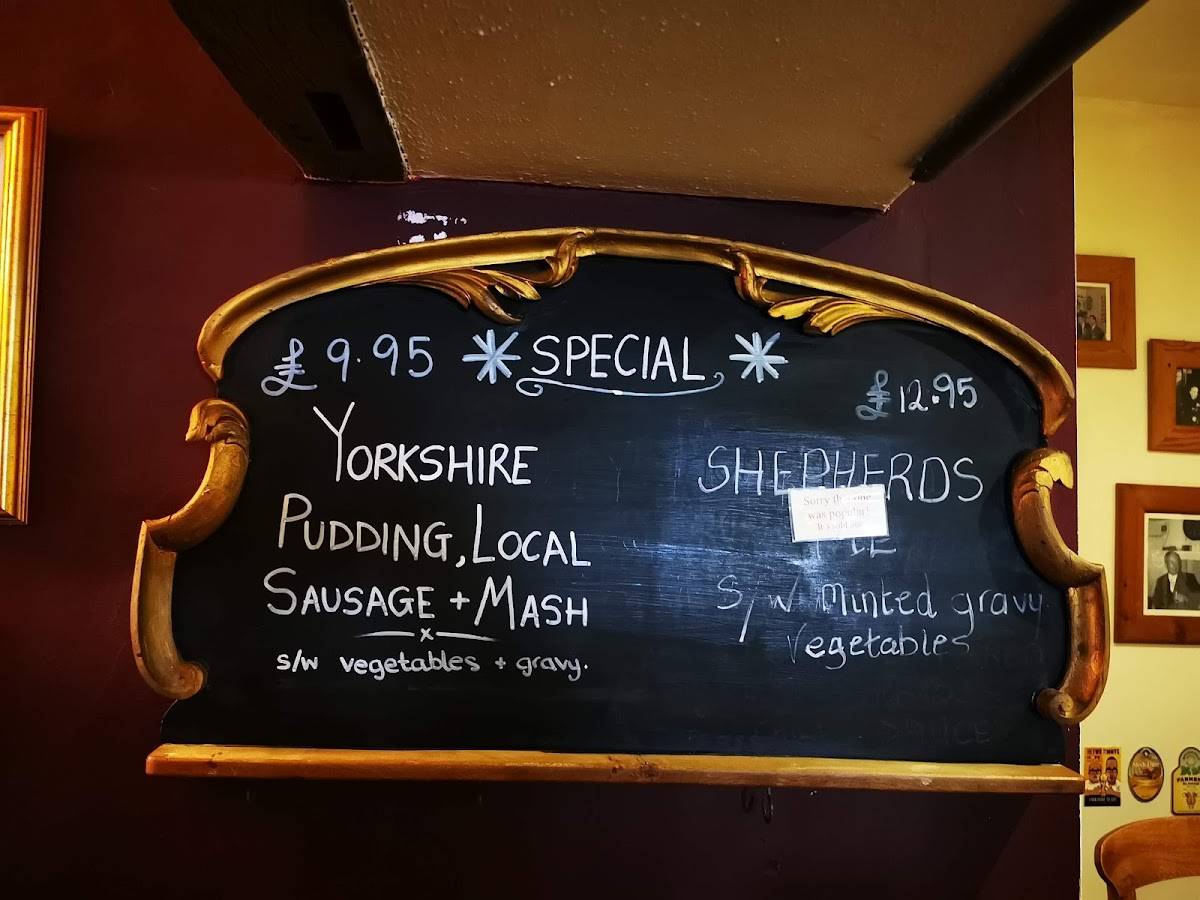 £9.95
* SPECIAL *
YORKSHIRE
PUDDING, LOCAL
SAUSAGE + MASH
x
s/w vegetables + gravy.
£12.95
SHEPHERDS
PIE
Sorry this one
was popular!
It's sold out
s/w Minted gravy
Vegetables
SAUCE